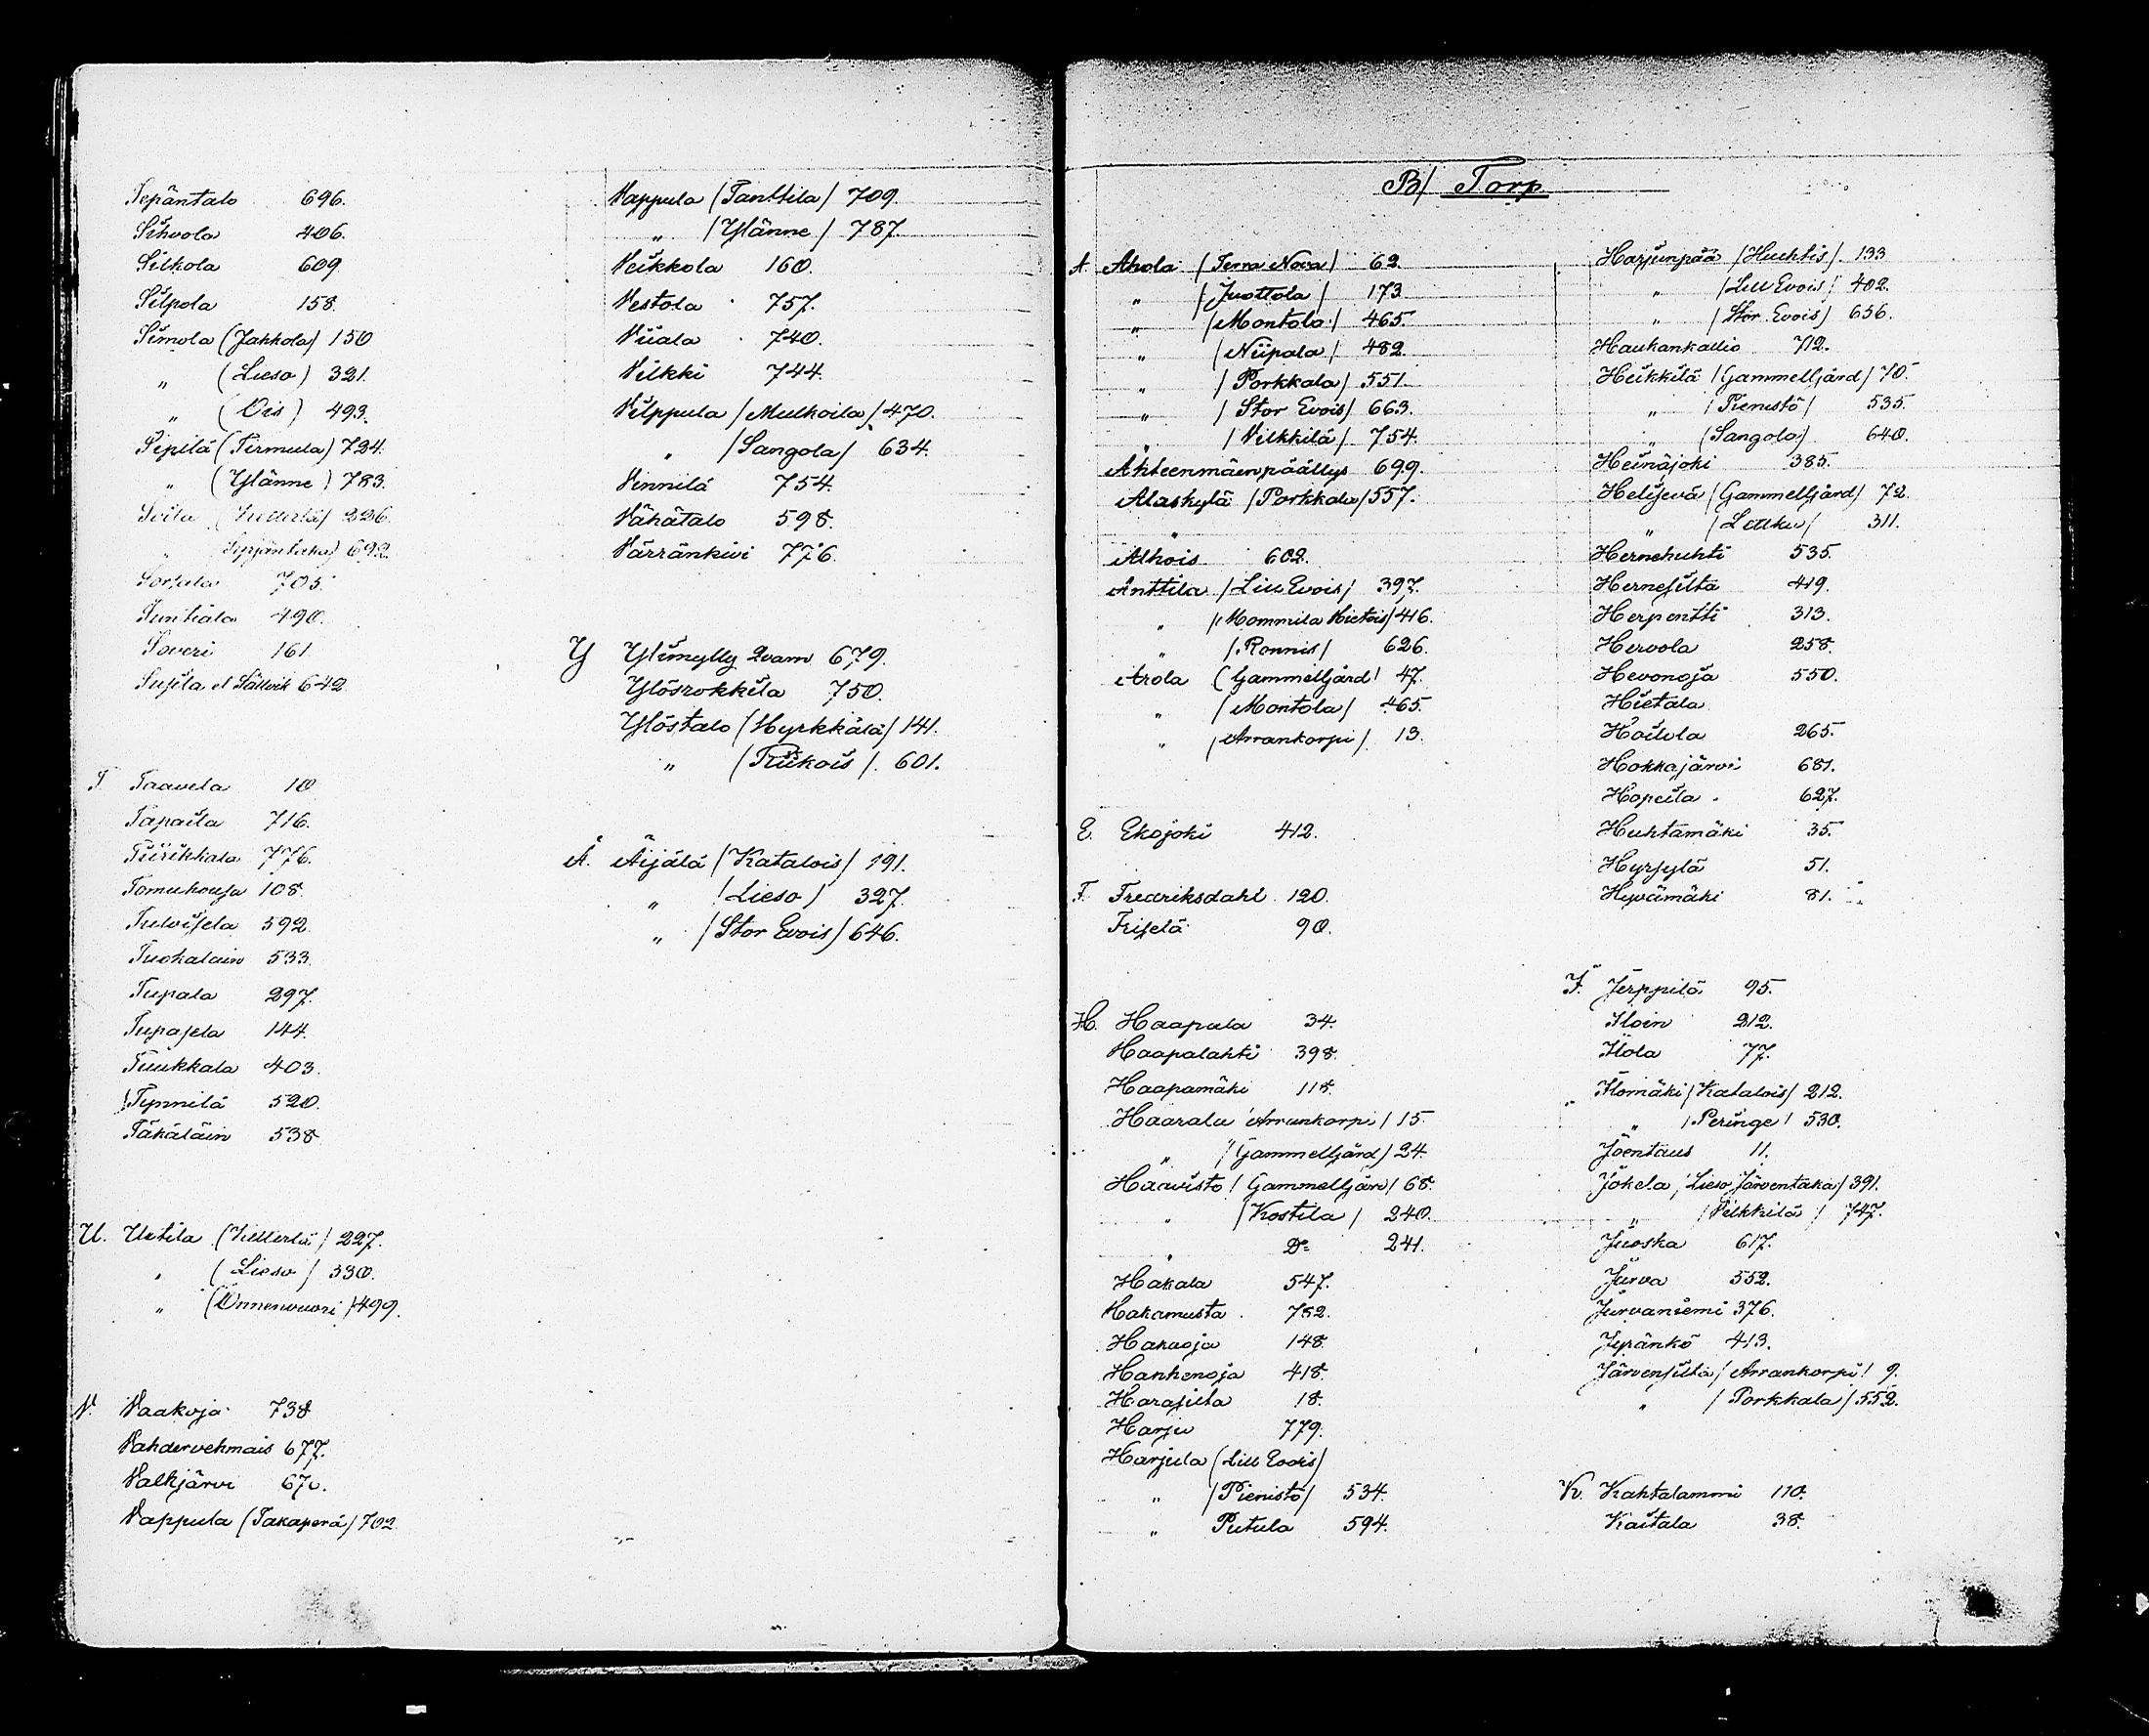 Sepäntalo 696.
Sihvola 406.
Silkola 609
Silpola 158.
Simola (Jahkola) 150
„ (Lieso) 321.
„ (Ois) 493.
Sipilä (Tirmula) 724.
„ (Ylänne) 783.
Soila (Kellerlä) 226.
„ Sepäntaka) 692
Sorsala 705.
Suntiala 490.
Soveri 161.
Susila el Sätkvik 642
T Taavela 10
Tapaila 716.
Tiirikkala 776.
Tomuhousa 108.
Tulvisela 592
Tuokalain 533.
Tupala 297.
Tupasela 144.
Tuukkala 403.
Tynnilä 520.
Täkäläin 538
U. Uotila (Kellerlä) 227.
„ (Lieso) 330.
„ (Onnenvuori) 499.
V. Vaakoja 738
Vahdervehmais 677.
Valkjärvi 670.
Vappula (Takaperä) 702
Vappula (Tanttila) 709.
„ (Ylänne) 787.
Veikkola 160.
Vestola 757.
Viiala 740.
Vilkki 744.
Vilppula (Mulkoila) 470.
„ (Sangola) 634.
Vinnilä 754.
Vähätalo 598.
Värränkivi 776.
Y Ylimylly Qvarn 679.
Ylösrokkila 750.
Ylöstalo (Hyrkkälä) 141.
„ (Riikois). 601.
Ä. Äijälä (Katalois) 191.
„ (Lieso) 327.
„ (Stor Evois) 646.
B/ Torp
A Ahola (Terra Nova) 62.
„ (Juottola) 173.
„ (Montola) 465.
„ (Niipala) 482.
„ (Porkkala) 551.
„ (Stor Evois) 663.
„ (Vilkkilä) 754.
Ahteenmäenpäällys 699.
Alaskylä (Porkkala) 557.
„
Alhois 602.
Anttila (Lill Evois) 397.
„ (Mommila Hietois) 416.
„ (Ronnis) 626.
Arola (Gammelgård) 47.
„ (Montola) 465.
„ (Arrankorpi) 13.
E. Ekojoki 412.
F. Fredriksdahl 120.
Frisilä 90.
H. Haapala 34.
Haapalahti 398.
Haapamäki 118.
Haarala (Arrankorpi) 15
„ (Gammelgård) 24.
Haavisto (Gammelgård) 68.
„ (Kostila) 240.
„ Do 241.
Hakala 547.
Hakamusta 782.
Hakaoja 148
Hanhenoja 418.
Harasilta 18.
Harju 779.
Harjula (Lill Evois)
„ (Pienistö) 534.
„ Putula 594.
Harjunpää (Huhtis). 133
„ (Lill Evois) 402.
„ (Stor Evois) 656.
Haukankallio 712.
Heikkilä (Gammelgård) 70.
„ (Pienistö) 535.
„ (Sangola) 640.
Heinäjoki 385.
Helisevä (Gammelgård) 72.
„ (Lettku) 311.
Hernehuhti 535.
Hernesilta 419.
Herpentti 313.
Hervola 258.
Hevonoja 550.
Hietala
Hoilola 265.
Hokkajärvi 681.
Hopeila 627.
Huhtamäki 35.
Hyrsylä 51.
Hyvämäki 81.
J. Jerppilä 95.
Iloin 212.
Ilola 77.
Ilomäki (Katalois) 212.
„ (Peringe) 530.
Joentaus 11.
Jokela (Lieso Järventaka) 391.
„ (Vilkkilä) 747.
Juoska 617.
Jurva 552.
Jurvaniemi 376.
Jypänkö 413.
Järvensilta (Arrankorpi) 9.
„ (Porkkala) 552.
K. Kahtalammi 110.
Kaitala 38.